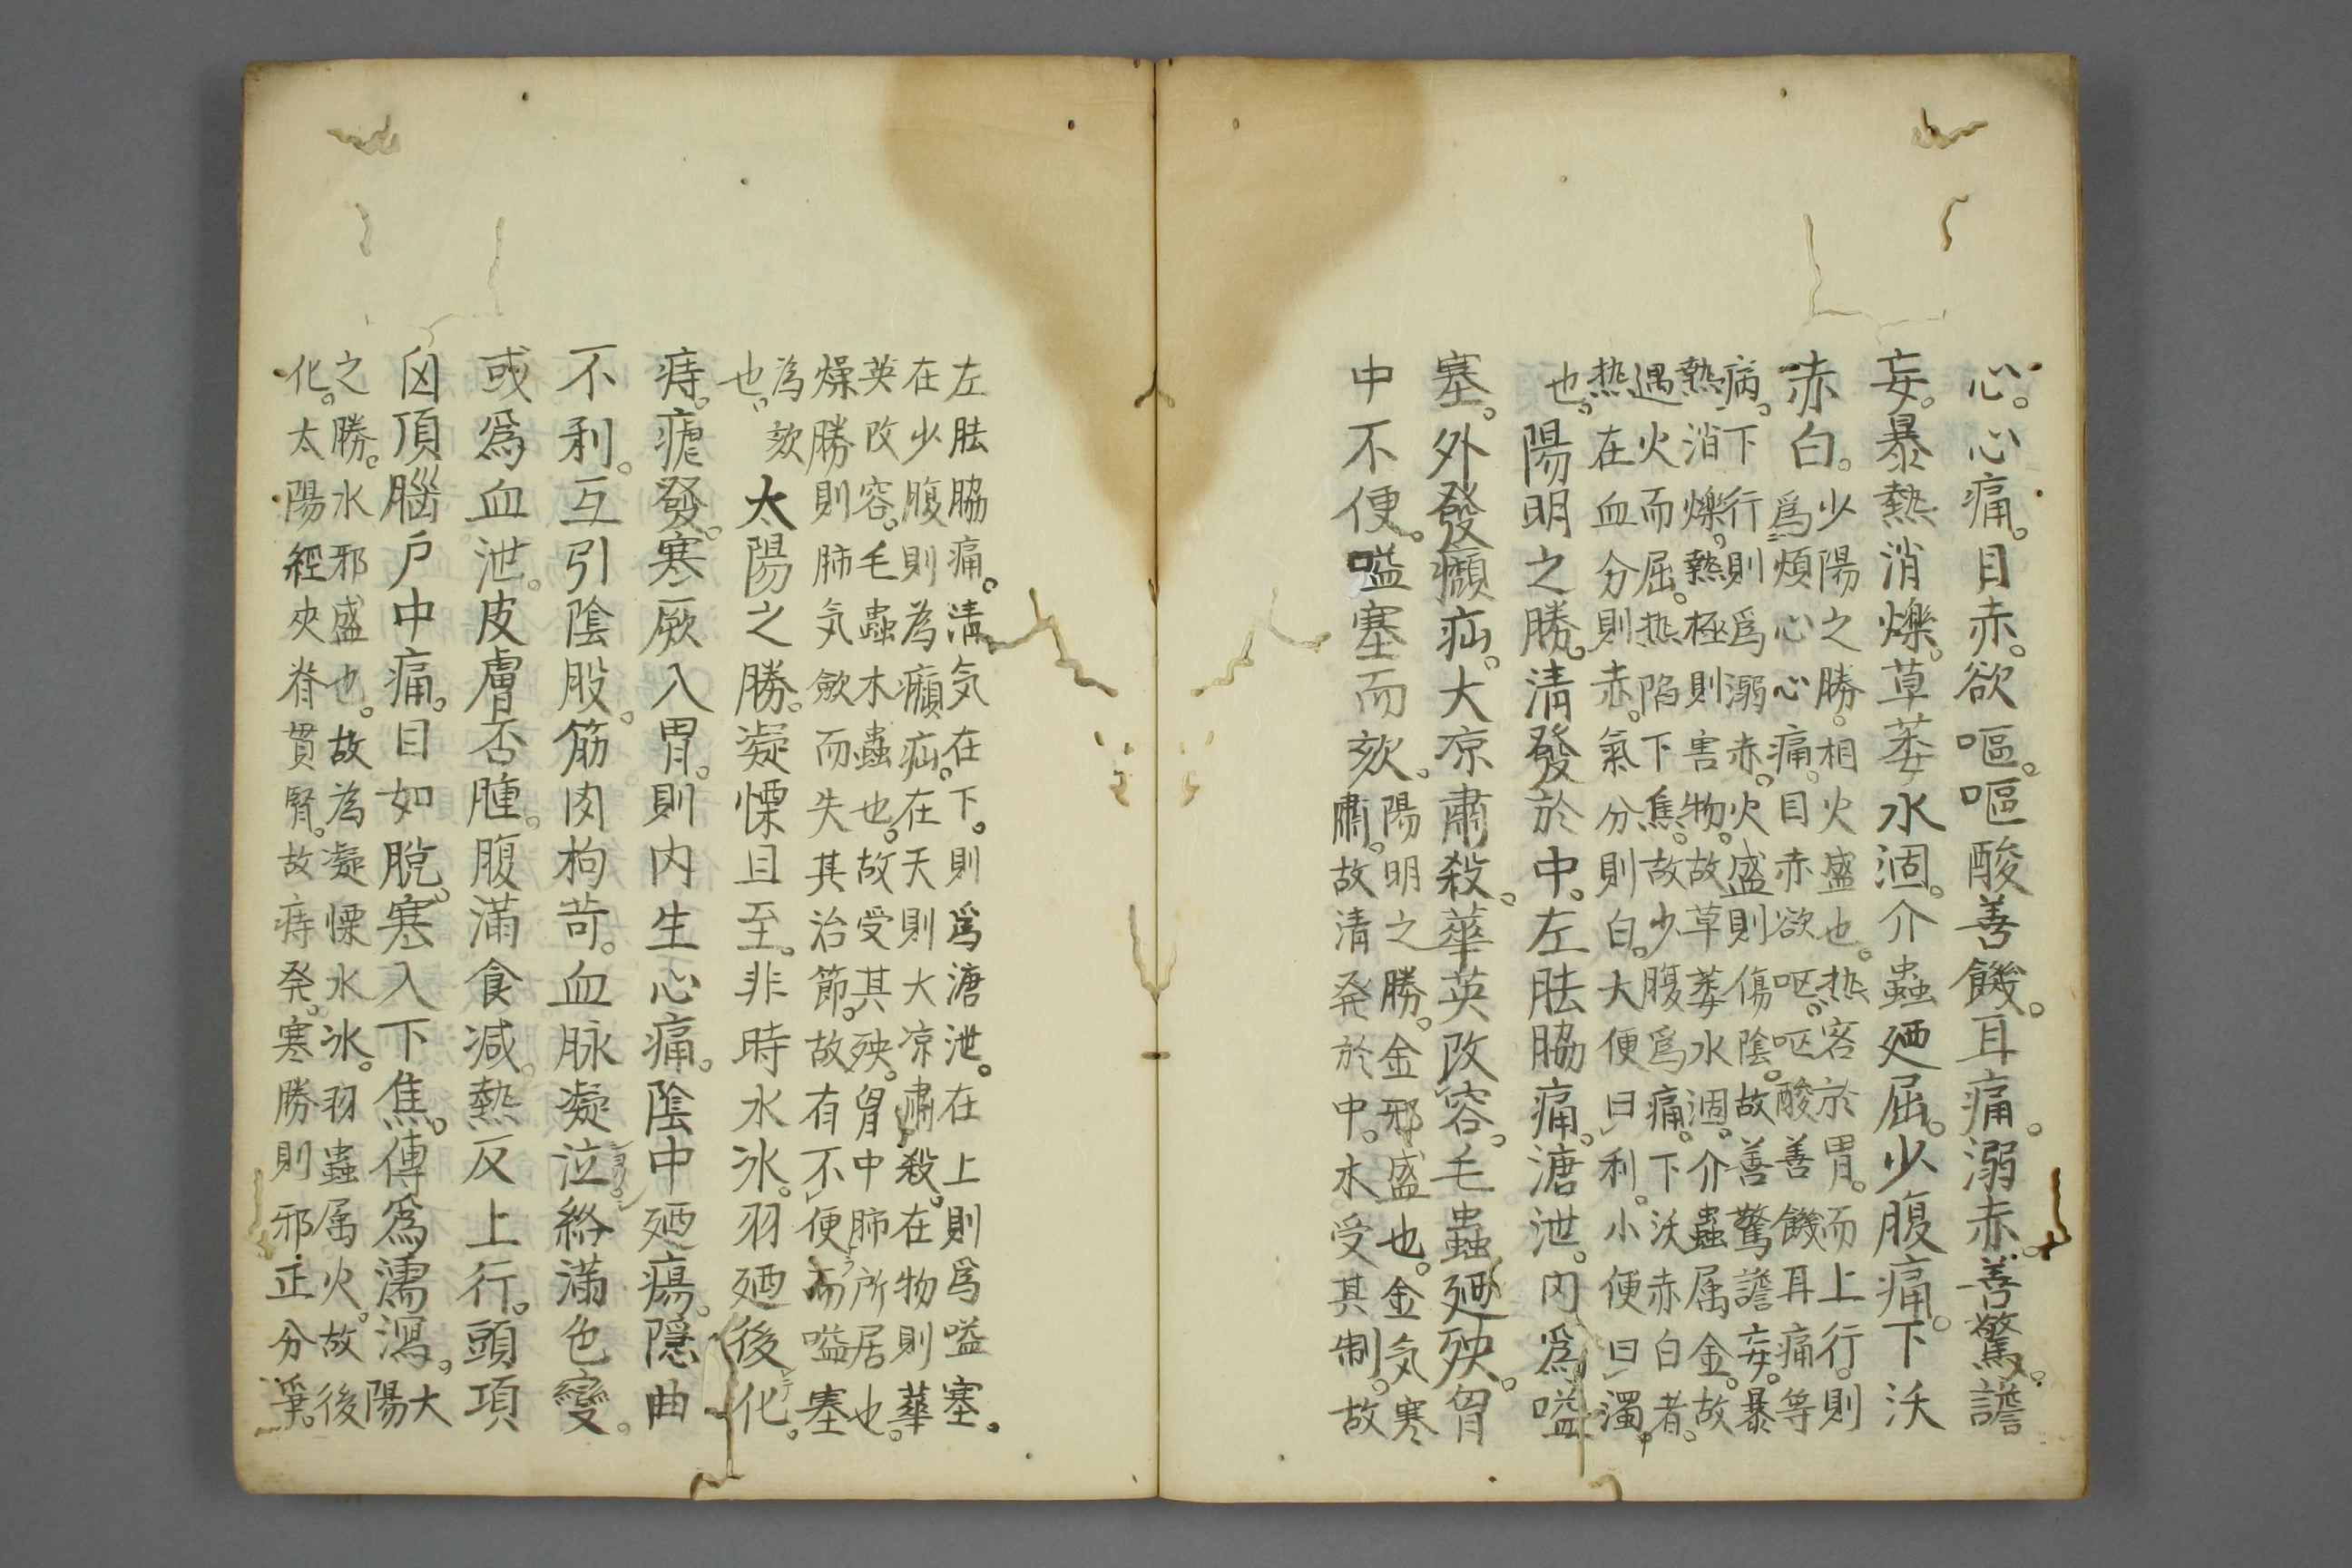 心。心痛。目赤。欲嘔。嘔酸善饑。耳痛。溺赤。善驚。譫
妄。暴熱消爍。草萎水涸。介蟲廼屈。少腹痛。下沃
赤白。少陽之勝。相火盛也。热客於胃。而上行。則
爲煩心心痛。目赤欲呕。呕酸善饑耳痛等
病。下行則爲溺赤。火盛則傷陰。故善驚譫妄。暴
熱消爍。熱極則害物。故草萎水涸。介蟲属金。故
遇火而屈。热陷下焦。故少腹爲痛。下沃赤白者。
热在血分則赤。氣分則白。大便曰利。小便曰濁。
也。陽明之勝。清發於中。左胠脇痛。溏泄。内爲嗌
塞。外發癩疝。大凉肅殺。華英改容。毛蟲廼殃。胷
中不便。嗌塞而欬。陽明之勝。金邪盛也。金気寒
肅。故清発於中。木受其制。故
左胠脇痛。清気在下。則爲溏泄。在上則爲嗌塞。
在少腹則為癩疝。在天則大凉肅殺。在物則華
英改容。毛蟲木蟲也。故受其殃。胷中肺所居也。
燥勝則肺気歛而失其治節。故有不便而嗌塞
為欬
也。太陽之勝。凝慄且至。非時水冰。羽廼後化。
痔。瘧發。寒厥入胃。則内生心痛。陰中廼瘍。隠曲
不利。互引陰股。筋肉拘苛。血脉凝泣。絡滿色變。
或爲血泄。皮膚否腫。腹滿食减。熱反上行。頭項
囟頂腦户中痛。目如脫。寒入下焦。傳爲濡瀉。大陽
之勝。水邪盛也。故為凝慄水冰。羽蟲属火。故後
化。太陽經夾脊貫腎。故痔発。寒勝則邪正分爭。